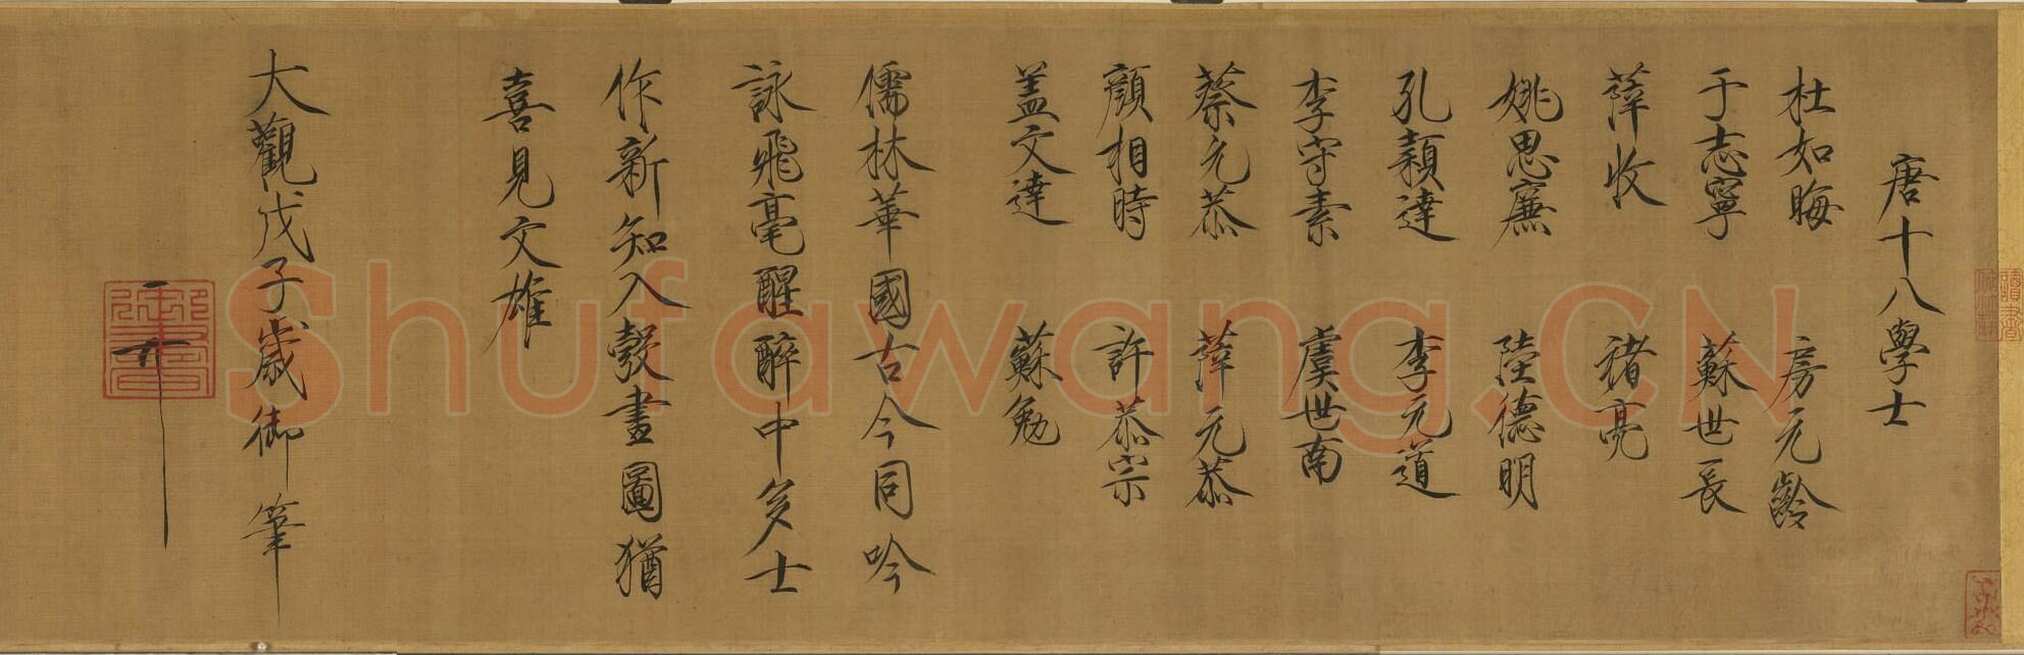 唐十八學士
杜如晦 房元齡
于志寧 蘇世長
薛收 褚亮
姚思廉 陸德明
孔穎達 李元道
李守素 虞世南
蔡允恭 薛元敬
顏相時 許敬宗
蓋文達 蘇勉
儒林華國古今同吟
詠飛毫醒醉中多士
作新知入彀畫圖猶
喜見文雄
大觀戊子歲御筆
御書
Shufawang.CN